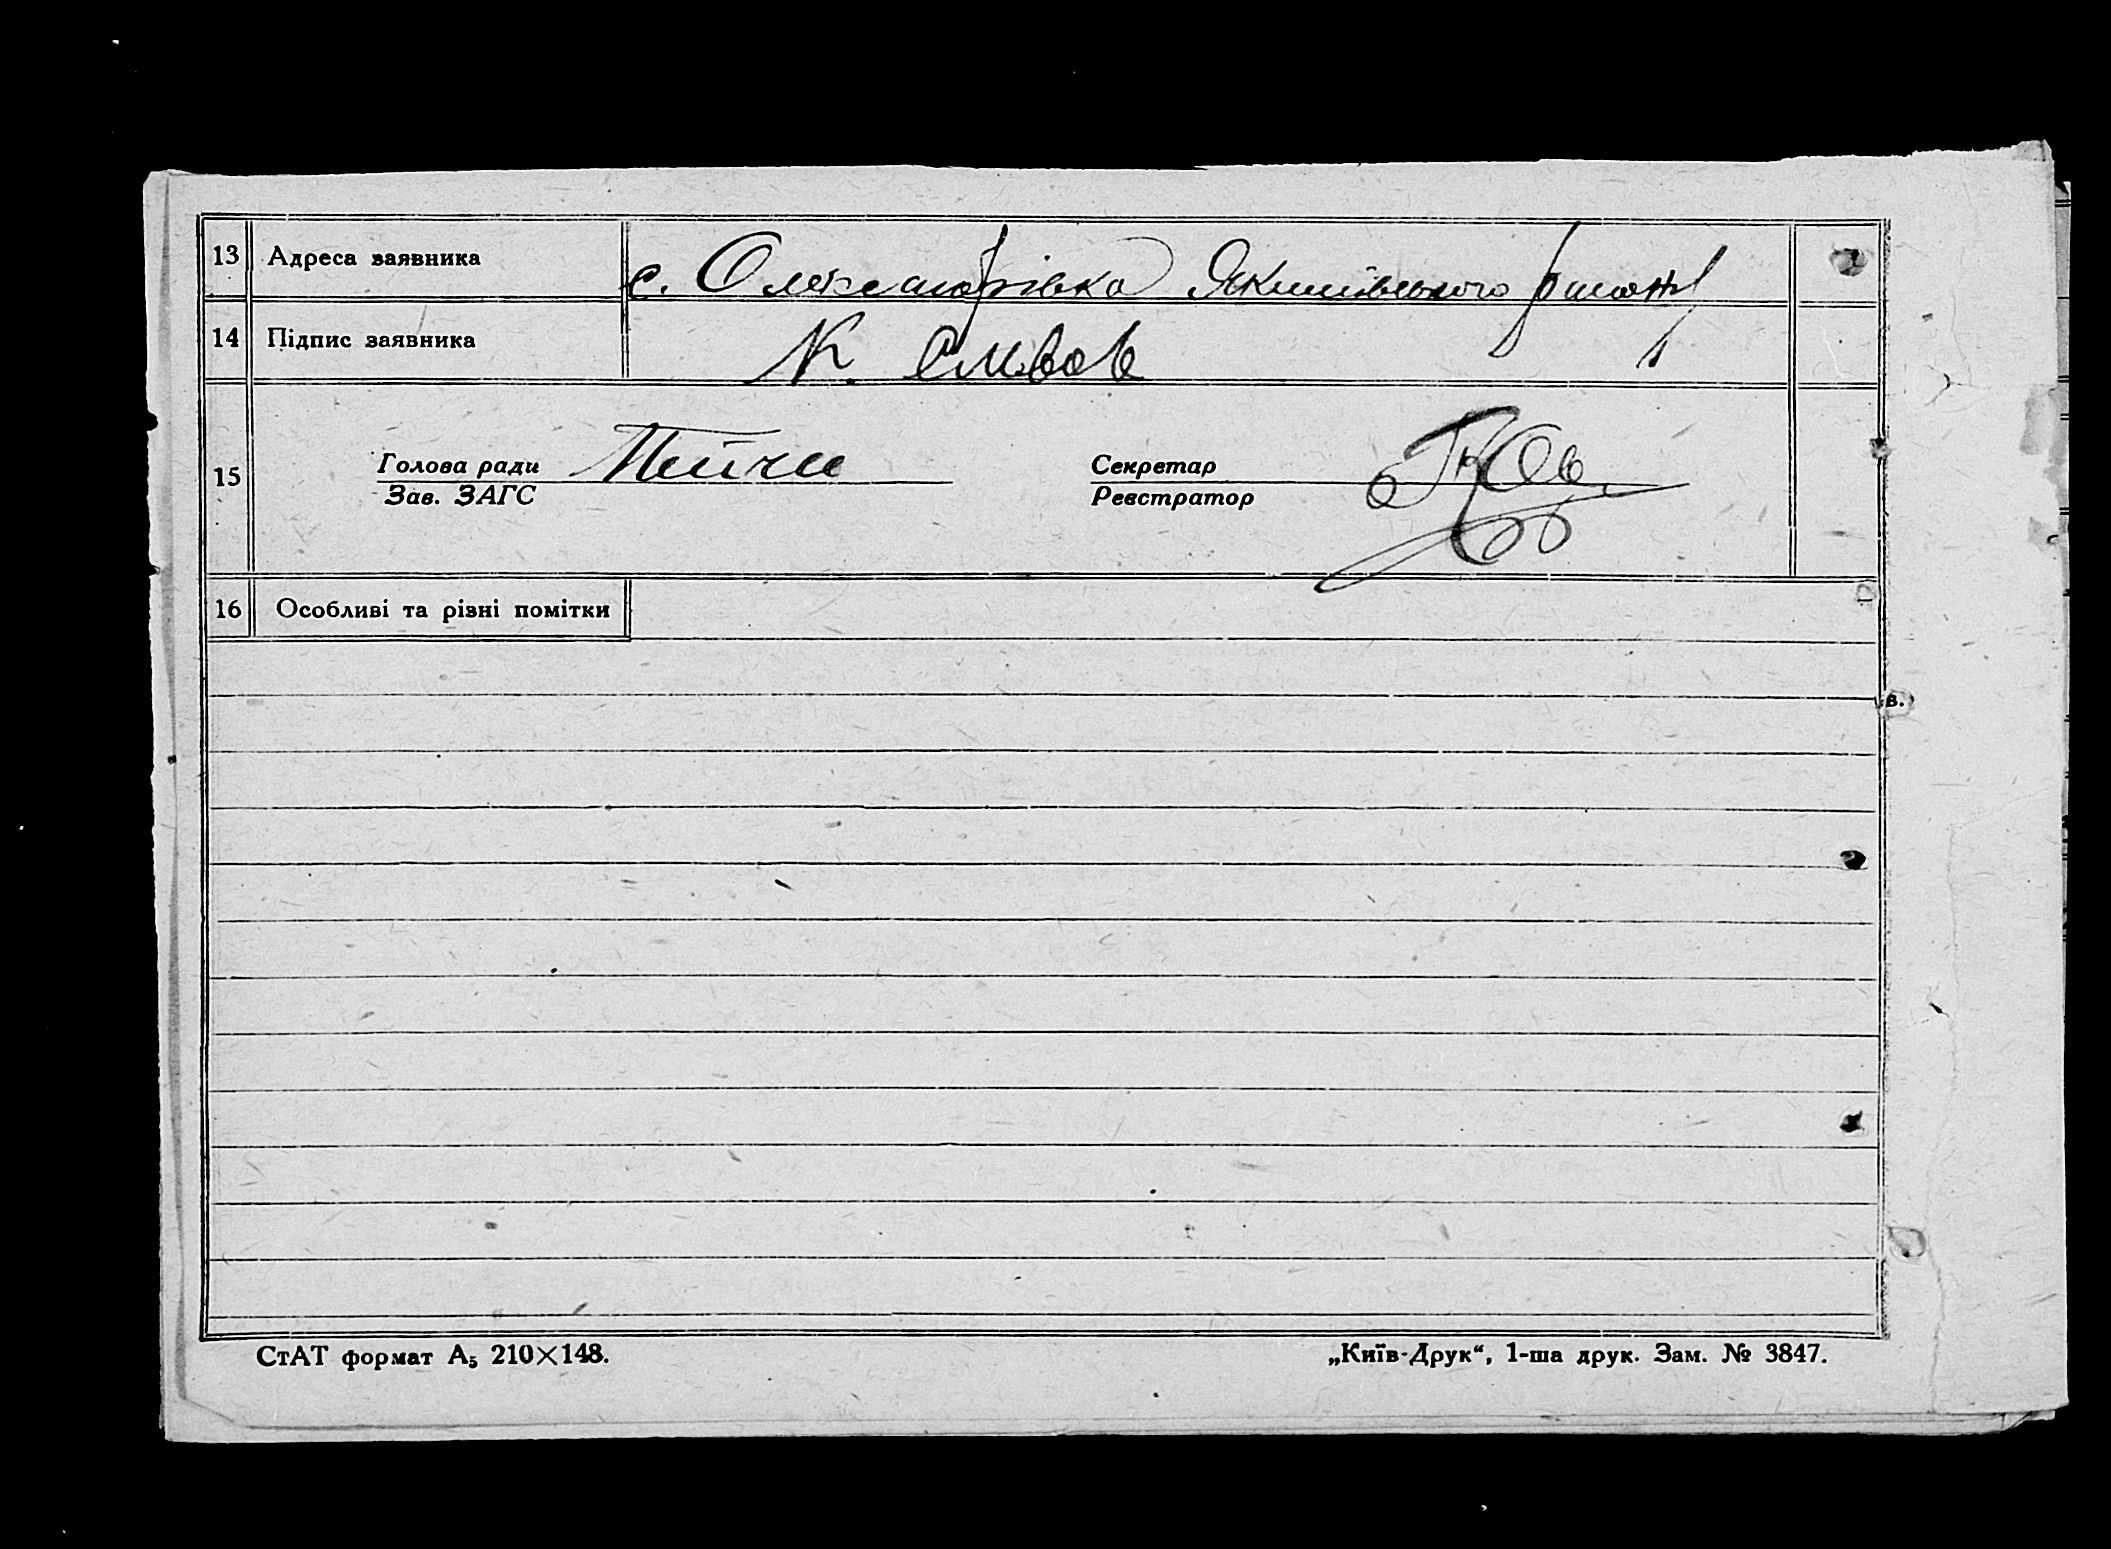 13 Адреса заявника с. Олександрівка Якимівського району
14 Підпис заявника К.
15 Голова ради Секретар
Зав. ЗАГС Реєстратор
16 Особливі та різні помітки
в.
СтАТ формат А₅ 210×148. „Київ-Друк“, 1-ша друк. Зам. № 3847.